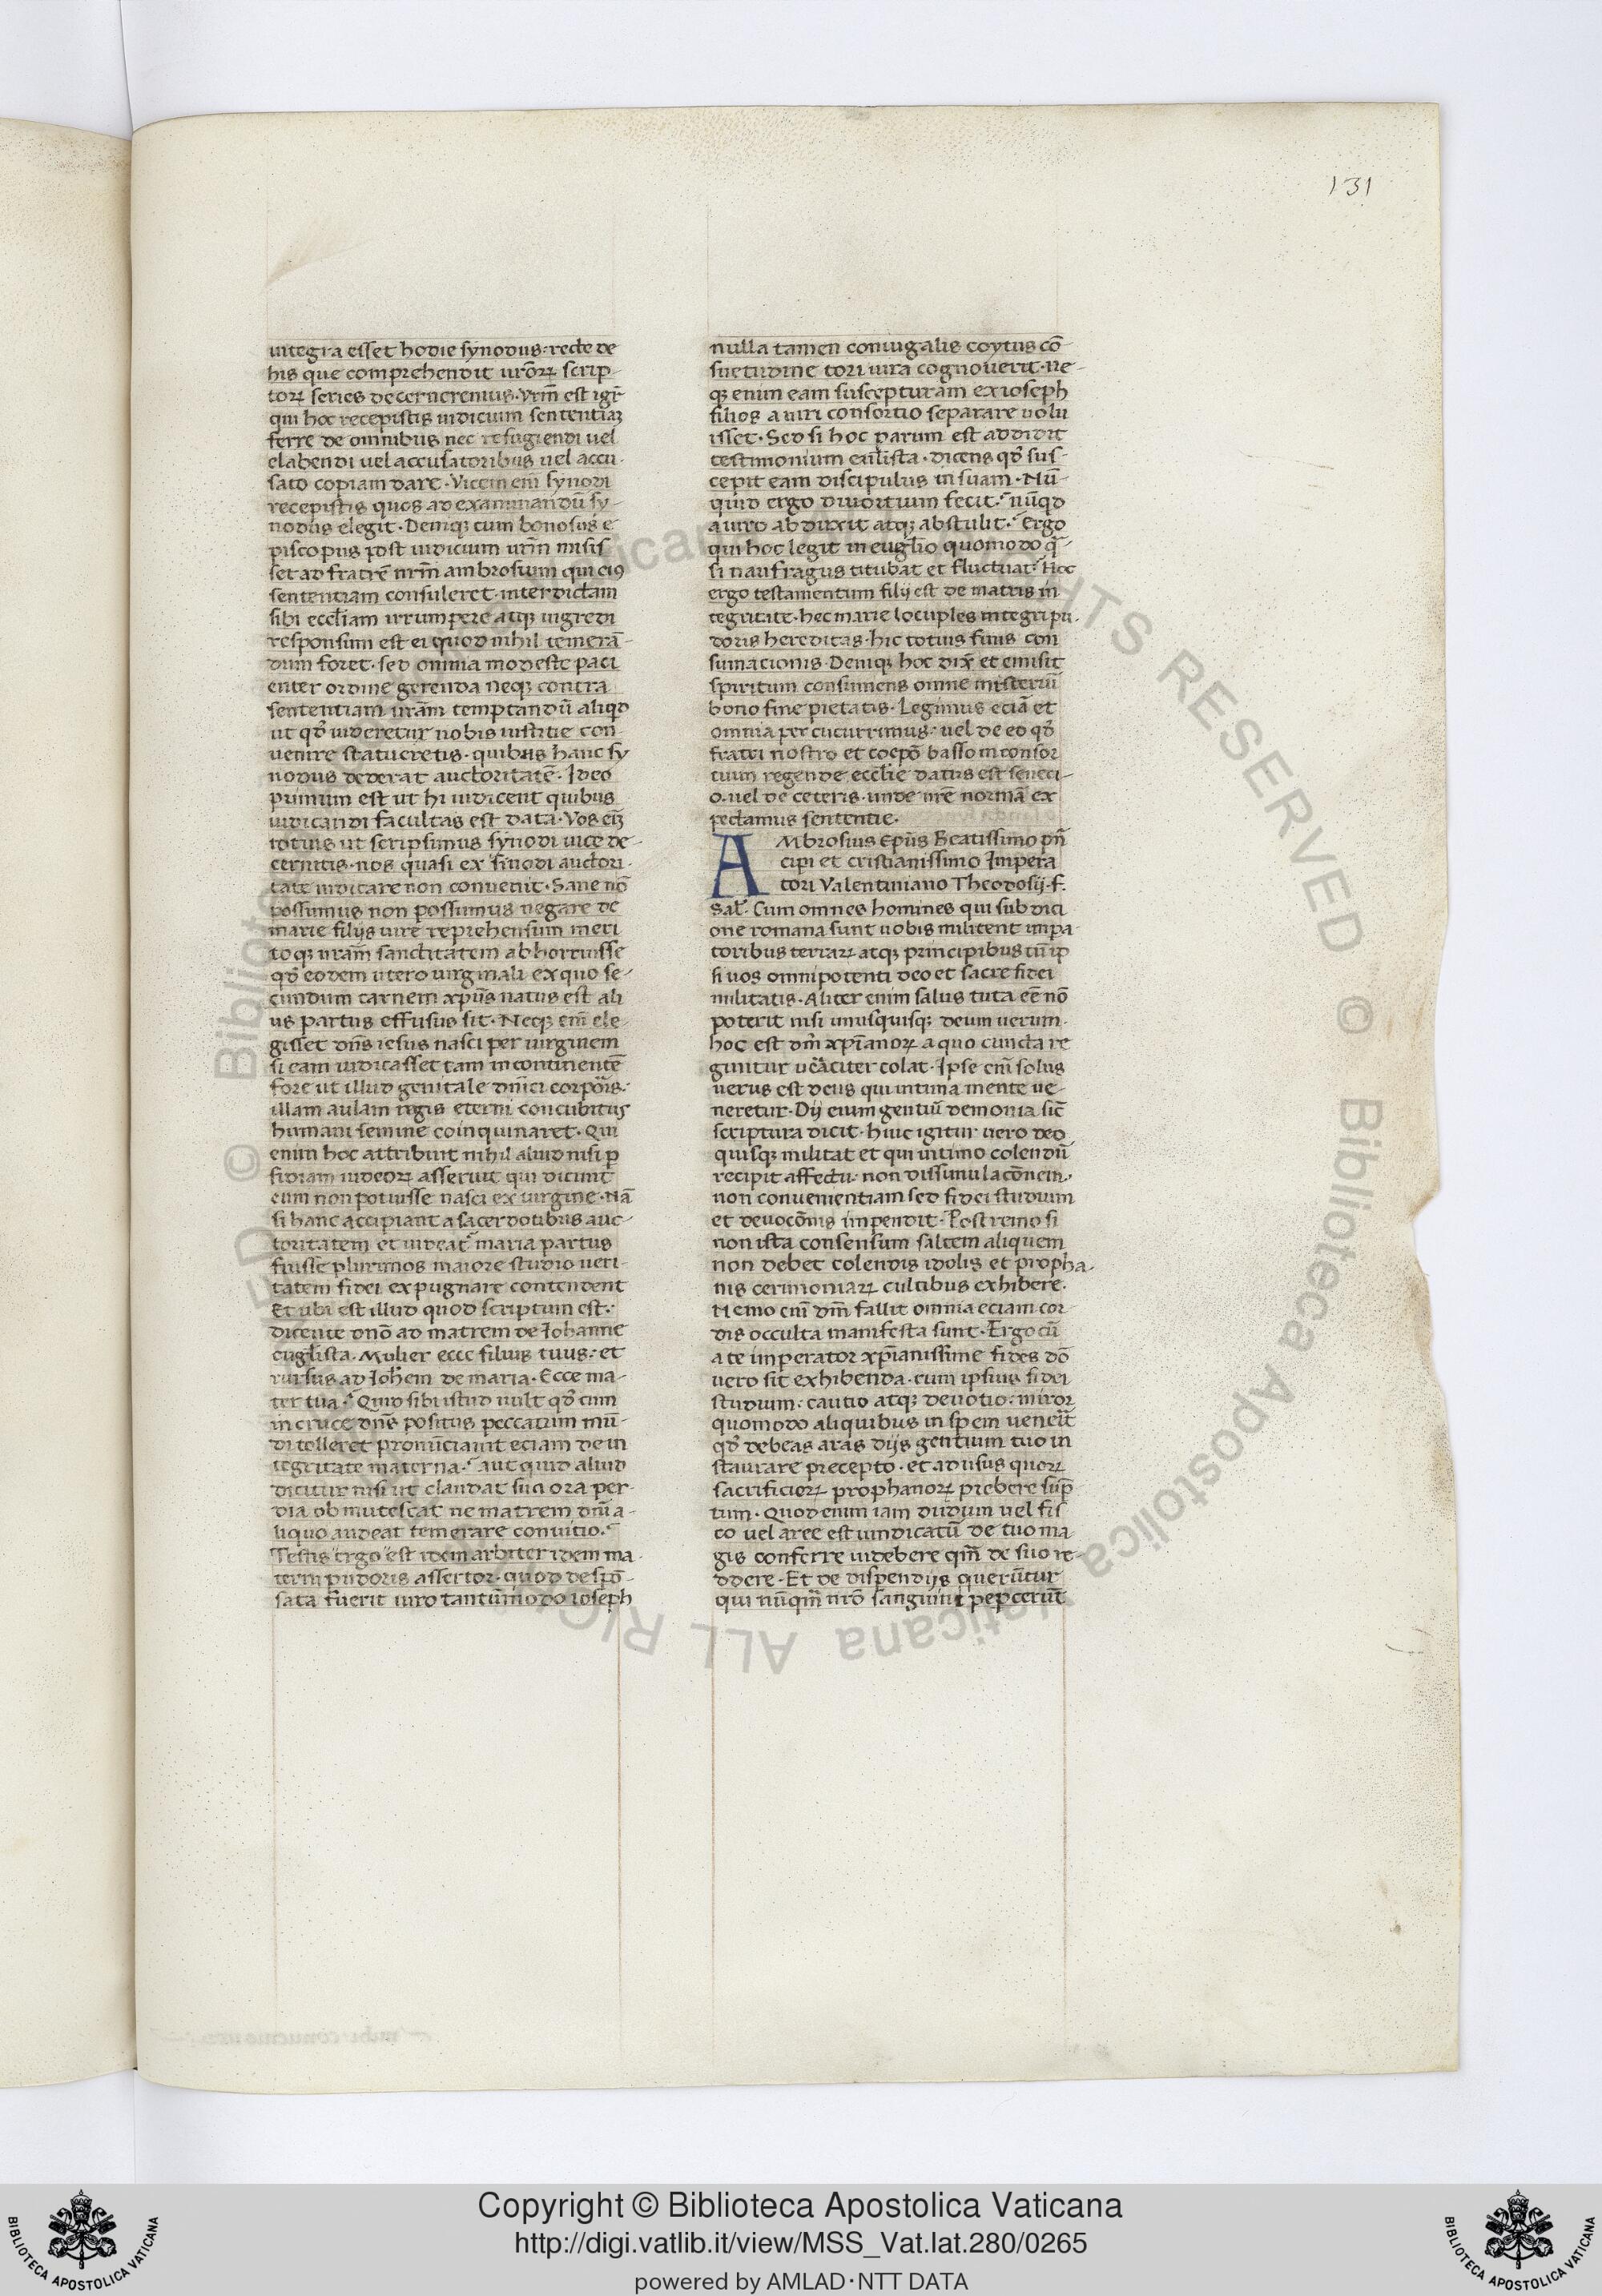 131
integra esset hodie synodus: recte de
his que comprehendit urōꝝ scrip-
toꝝ series decerneremus. Vrm̄ est igr̄
qui hoc recepistis iudicium sententiaꝫ
ferre de omnibus nec refugiendi uel
elabendi uel accusatoribus uel accu-
sato copiam dare. Vicem em̄ synodi
recepistis quos ad examinandū sy-
nodus elegit. Deniqꝫ cum bonosus e
piscopus post iudicium urm̄ misis
set ad fratrē nrm̄ ambrosium qui eiꝰ
sententiam consuleret. interdictam
sibi eccl̄iam irrumpere atqꝫ ingredi
responsum est ei quod nihil temerā-
dum foret. sed omnia modeste paci
enter ordine gerenda neqꝫ contra
sententiam urām temptandū aliqd
ut qd̄ uideretur nobis iustitie con
uenire statueretis. quibus hanc sy
nodus dederat auctoritatē. Ideo
primum est ut hi iudicent quibus
iudicandi facultas est data. Vos eīꝫ
totius ut scripsimus synodi uice de-
cernitis. nos quasi ex sinodi auctori-
tate iudicare non conuenit. Sane nō
possumus non possumus negare de
marie filijs iure reprehensum meri
toqꝫ urām sanctitatem abhorruisse
qd̄ eodem utero uirginali ex quo se-
cundum carnem xp̄us natus est ali
us partus effusus sit. Neqꝫ em̄ ele-
gisset dn̄s iesus nasci per uirginem
si eam iudicasset tam incontinentē
fore ut illud genitale dn̄ici corporis.
illam aulam regis eterni concubitus
humani semine coinquinaret. Qui
enim hoc attribuit nihil aliud nisi ꝑ
fidiam iudeoꝝ asseruit qui dicunt
eum non potuisse nasci ex uirgine. Nā
si hanc accipiant a sacerdotibus auc-
toritatem et uideat᷑ maria partus
fuisse plurimos maiore studio ueri-
tatem fidei expugnare contendent
Et ubi est illud quod scriptum est.
dicente dn̄o ad matrem de Iohanne
eugl̄ista. Mulier ecce filius tuus: et
rursus ad Ioh̄em de maria. Ecce ma-
ter tua. Quid sibi istud uult qd̄ cum
in cruce dn̄s positus peccatum mū-
di tolleret pronūciauit eciam de in
tegritate materna. aut quid aliud
dicitur nisi ut claudat sua ora per-
dia obmutescat ne matrem dn̄i a-
liquo audeat temerare conuitio.
Testis ergo est idem arbiter idem ma-
terni pudoris assertor. quod despō-
sata fuerit uiro tantūmodo ioseph
nulla tamen coniugalis coytus cō-
suetudine tori iura cognouerit. Ne-
qꝫ enim eam suscepturam ex ioseph
filios a uiri consortio separare uolu
isset. Sed si hoc parum est addidit
testimonium eul̄ista. dicens qd̄ sus-
cepit eam discipulus in suam. Nū-
quid ergo diuortium fecit. nūqd
a uiro abduxit atqꝫ abstulit. Ergo
qui hoc legit in eugl̄io quomodo q̄-
si naufragus titubat et fluctuat. Hoc
ergo testamentum filij est de matris in
tegritate. hec marie locuples integri pu
doris hereditas. hic totius finis con
sumacionis. Deniqꝫ hoc dix̄ et emisit
spiritum consumens omne misteriū
bono fine pietatis. Legimus eciā et
omnia percucurrimus: uel de eo qd̄
fratri nostro et coepō basso in consor
tium regende eccl̄ie datus est seneci-
o. uel de ceteris. unde ur̄e normā ex
pectamus sententie.
AMbrosius Epūs Beatissimo pn̄
cipi et cristianissimo Impera
tori Valentiniano Theodosij. f.
Sal̄. Cum omnes homines qui sub dici
one romana sunt uobis militent impa-
toribus terraꝝ atqꝫ principibus tū ip
si uos omnipotenti deo et sacre fidei
militatis. Aliter enim salus tuta eē nō
poterit nisi unusquisqꝫ deum uerum.
hoc est dm̄ xp̄ianoꝝ a quo cuncta re
guntur ueraciter colat. Ipse em̄ solus
uerus est deus qui intima mente ue-
neretur. Dij enim gentiū demonia sic̄
scriptura dicit. huic igitur uero deo
quisqꝫ militat et qui intimo colendū
recipit affectu. non dissimulacōnem.
non conuenientiam sed fidei studium
et deuocōnis impendit. Postremo si
non ista consensum saltem aliquem
non debet colendis idolis et propha-
nis cerimoniaꝝ cultibus exhibere.
Nemo em̄ dm̄ fallit omnia eciam cor-
dis occulta manifesta sunt. Ergo cū
a te imperator xp̄ianissime fides dō
uero sit exhibenda. cum ipsius fidei
studium. cautio atqꝫ deuotio: miror
quomodo aliquibus in spem uenerit
qd̄ debeas aras dijs gentium tuo in
staurare precepto. et ad usus quoꝝ
sacrificioꝝ prophanoꝝ prebere sūp
tum. Quod enim iam dudum uel fis
co uel aree est uindicatū de tuo ma
gis conferre uidebere qm̄ de suo re-
ddere. Et de dispendijs querūtur
qui nūqm̄ nrō sanguini pepcerūt
Copyright © Biblioteca Apostolica Vaticana
http://digi.vatlib.it/view/MSS_Vat.lat.280/0265
powered by AMLAD·NTT DATA